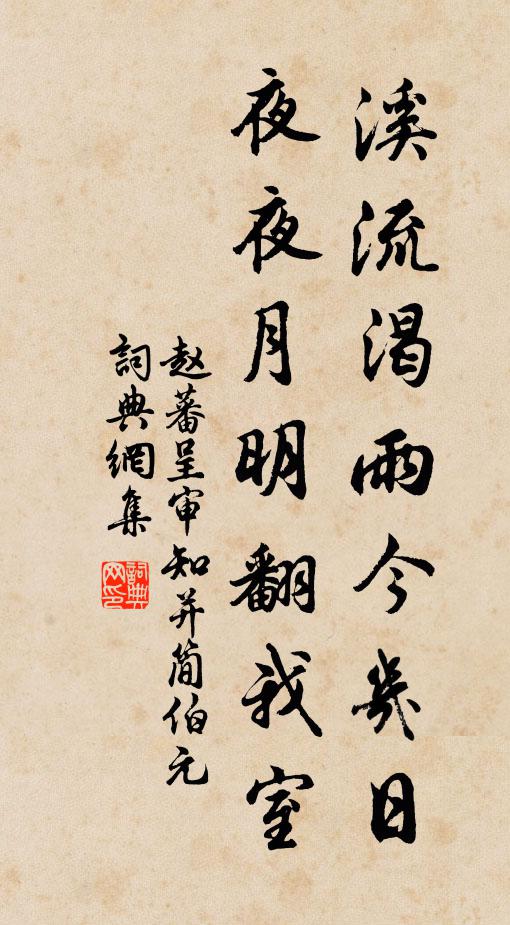 溪流渴雨今幾日
夜夜月明翻我室
赵蕃呈审知并简伯元
詞典網集
詞典网印